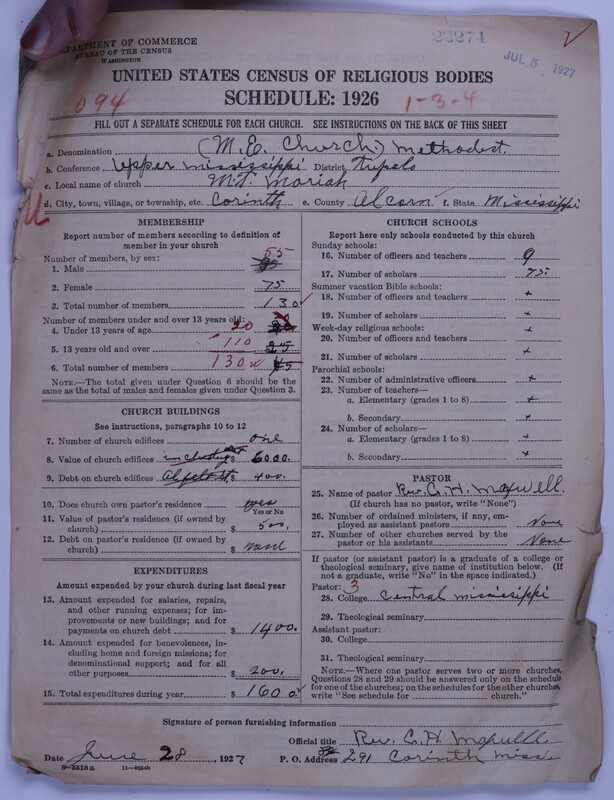 DEPARTMENT OF COMMERCE
BUREAU OF THE CENSUS
WASHINGTON
22274
JUL 5 1927
UNITED STATES CENSUS OF RELIGIOUS BODIES
SCHEDULE: 1926
094
1-3-4
FILL OUT A SEPARATE SCHEDULE FOR EACH CHURCH. SEE INSTRUCTIONS ON THE BACK OF THIS SHEET
a. Denomination (M.E. Church) Methodist.
b. Conference Upper Mississippi District Tupelo
c. Local name of church MT. Moriah
d. City, town, village, or township, etc. Corinth e. County Alcorn f. State Mississippi
MEMBERSHIP
Report number of members according to definition of
member in your church
Number of members, by sex: 55
1. Male
2. Female 75
3. Total number of members 130
Number of members under and over 13 years old:
4. Under 13 years of age 20 20
5. 13 years old and over 110 25
6. Total number of members 130 45
NOTE.—The total given under Question 6 should be the
same as the total of males and females given under Question 3.
CHURCH BUILDINGS
See instructions, paragraphs 10 to 12
7. Number of church edifices one
8. Value of church edifices including $ 6000.
9. Debt on church edifices $ 400.
10. Does church own pastor's residence yes
Yes or No
11. Value of pastor's residence (if owned by
church) $ 500.
12. Debt on pastor's residence (if owned by
church) $ none
EXPENDITURES
Amount expended by your church during last fiscal year
13. Amount expended for salaries, repairs,
and other running expenses; for im-
provements or new buildings; and for
payments on church debt $ 1400.
14. Amount expended for benevolences, in-
cluding home and foreign missions; for
denominational support; and for all
other purposes $ 200.
15. Total expenditures during year $ 1600
CHURCH SCHOOLS
Report here only schools conducted by this church
Sunday schools:
16. Number of officers and teachers 9
17. Number of scholars 75
Summer vacation Bible schools:
18. Number of officers and teachers x
19. Number of scholars x
Week-day religious schools:
20. Number of officers and teachers x
21. Number of scholars x
Parochial schools:
22. Number of administrative officers x
23. Number of teachers—
a. Elementary (grades 1 to 8) x
b. Secondary x
24. Number of scholars—
a. Elementary (grades 1 to 8) x
b. Secondary x
PASTOR
25. Name of pastor Rev. C. H. Maxwell.
(If church has no pastor, write "None")
26. Number of ordained ministers, if any, em-
ployed as assistant pastors None
27. Number of other churches served by the
pastor or his assistants None
If pastor (or assistant pastor) is a graduate of a college or
theological seminary, give name of institution below. (If
not a graduate, write "No" in the space indicated.)
Pastor: 3
28. College Central Mississippi
29. Theological seminary
Assistant pastor:
30. College
31. Theological seminary
NOTE.—Where one pastor serves two or more churches,
Questions 28 and 29 should be answered only on the schedule
for one of the churches; on the schedules for the other churches
write "See schedule for church."
Signature of person furnishing information
Official title Rev. C. H. Maxwell
Date June 28, 1927 P. O. Address 291 Corinth Miss.
8-5518a 11-9554b